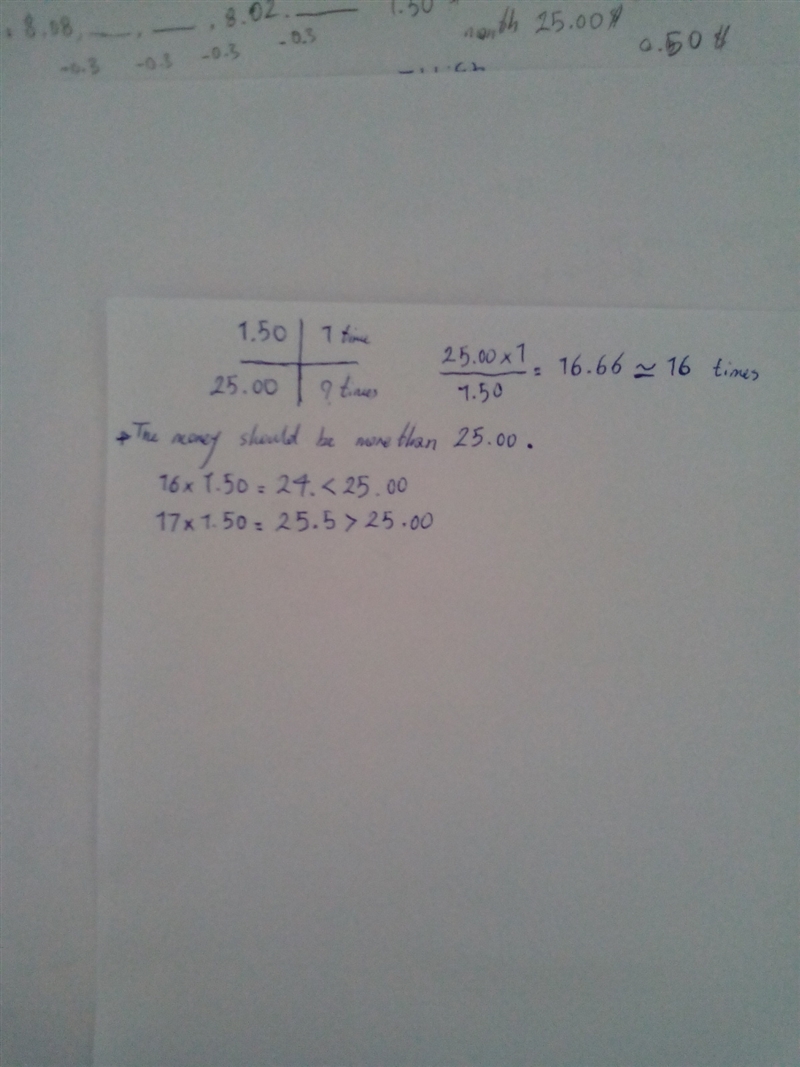 8.08, ___, ___, 8.02, ___ 1.50
-0.3 -0.3 -0.3 -0.3
month 25.00$ 0.50$
1.50 | 1 time
25.00 | ? times
25.00 x 1
1.50
= 16.66 ≃ 16 times
→ The money should be more than 25.00.
16 x 1.50 = 24. < 25.00
17 x 1.50 = 25.5 > 25.00